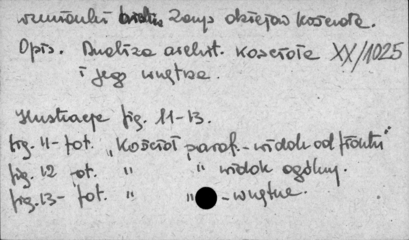 wizerunki Zarys dziejów kościoła.
Opis. Analiza archit. kościoła XX/1025
i jego wnętrza.
Ilustracje fig. 11-13.
fig. 11- fot. „Kościół paraf.- widok od frontu"
fig. 12 fot. " " widok ogólny.
fig. 13- fot. " " - wnętrze.